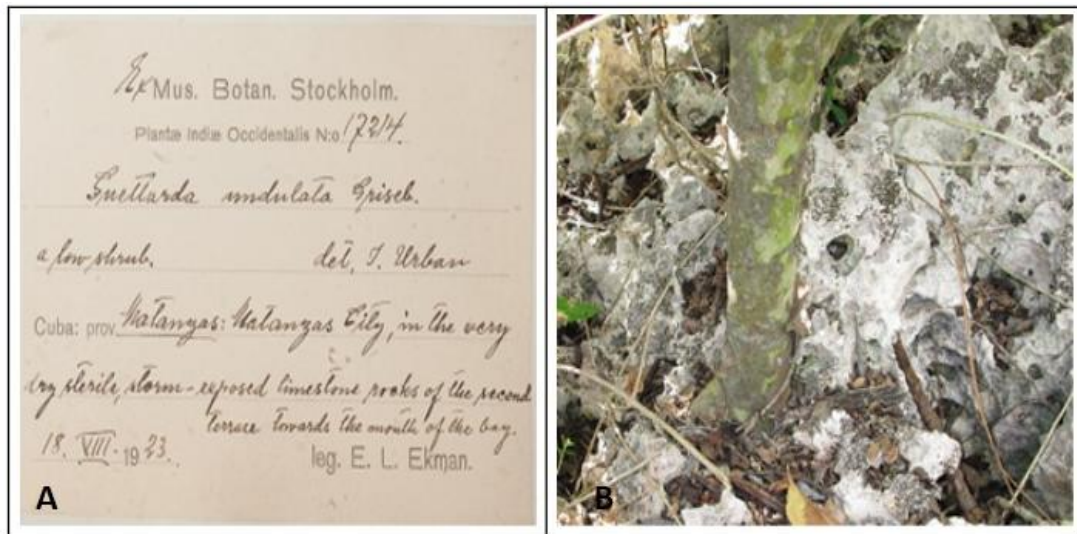 Ex Mus. Botan. Stockholm.
Plantæ Indiæ Occidentalis N:o 17214.
Guettarda undulata Griseb.
a low shrub. det. I. Urban
Cuba: prov. Matanzas: Matanzas City, in the very
dry sterile, storm-exposed limestone rocks of the second
terrace towards the mouth of the bay.
18. VIII. 1923. leg. E. L. Ekman.
A
B